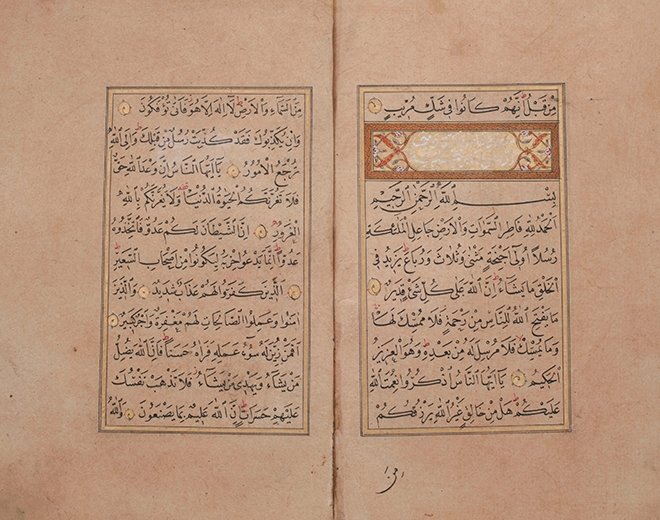 مِنْ قَبْلُ اِنَّهُمْ كَانُوا فِي شَكٍّ مُرِيبٍ
بِسْمِ اللهِ الرَّحْمٰنِ الرَّحِيمِ
اَلْحَمْدُ لِلّٰهِ فَاطِرِ السَّمٰوَاتِ وَالْاَرْضِ جَاعِلِ الْمَلٰئِكَةِ
رُسُلًا اُولِي اَجْنِحَةٍ مَثْنٰى وَثُلَاثَ وَرُبَاعَ يَزِيدُ فِي
الْخَلْقِ مَا يَشَاءُ اِنَّ اللهَ عَلٰى كُلِّ شَئٍ قَدِيرٌ
مَا يَفْتَحِ اللهُ لِلنَّاسِ مِنْ رَحْمَةٍ فَلَا مُمْسِكَ لَهَا
وَمَا يُمْسِكْ فَلَا مُرْسِلَ لَهُ مِنْ بَعْدِهِ وَهُوَ الْعَزِيزُ
الْحَكِيمُ يَا اَيُّهَا النَّاسُ اذْكُرُوا نِعْمَتَ اللهِ
عَلَيْكُمْ هَلْ مِنْ خَالِقٍ غَيْرُ اللهِ يَرْزُقُكُمْ
مِنَ السَّمَاءِ وَالْاَرْضِ لَا اِلٰهَ اِلَّا هُوَ فَاَنّٰى تُؤْفَكُونَ
وَاِنْ يُكَذِّبُوكَ فَقَدْ كُذِّبَتْ رُسُلٌ مِنْ قَبْلِكَ وَاِلَى اللهِ
تُرْجَعُ الْاُمُورُ يَا اَيُّهَا النَّاسُ اِنَّ وَعْدَ اللهِ حَقٌّ
فَلَا تَغُرَّنَّكُمُ الْحَيٰوةُ الدُّنْيَا وَلَا يَغُرَّنَّكُمْ بِاللهِ
الْغَرُورُ اِنَّ الشَّيْطَانَ لَكُمْ عَدُوٌّ فَاتَّخِذُوهُ
عَدُوًّا اِنَّمَا يَدْعُوا حِزْبَهُ لِيَكُونُوا مِنْ اَصْحَابِ السَّعِيرِ
اَلَّذِينَ كَفَرُوا لَهُمْ عَذَابٌ شَدِيدٌ وَالَّذِينَ
اٰمَنُوا وَعَمِلُوا الصَّالِحَاتِ لَهُمْ مَغْفِرَةٌ وَاَجْرٌ كَبِيرٌ
اَفَمَنْ زُيِّنَ لَهُ سُوءُ عَمَلِهِ فَرَاٰهُ حَسَنًا فَاِنَّ اللهَ يُضِلُّ
مَنْ يَشَاءُ وَيَهْدِي مَنْ يَشَاءُ فَلَا تَذْهَبْ نَفْسُكَ
عَلَيْهِمْ حَسَرَاتٍ اِنَّ اللهَ عَلِيمٌ بِمَا يَصْنَعُونَ وَاللهُ